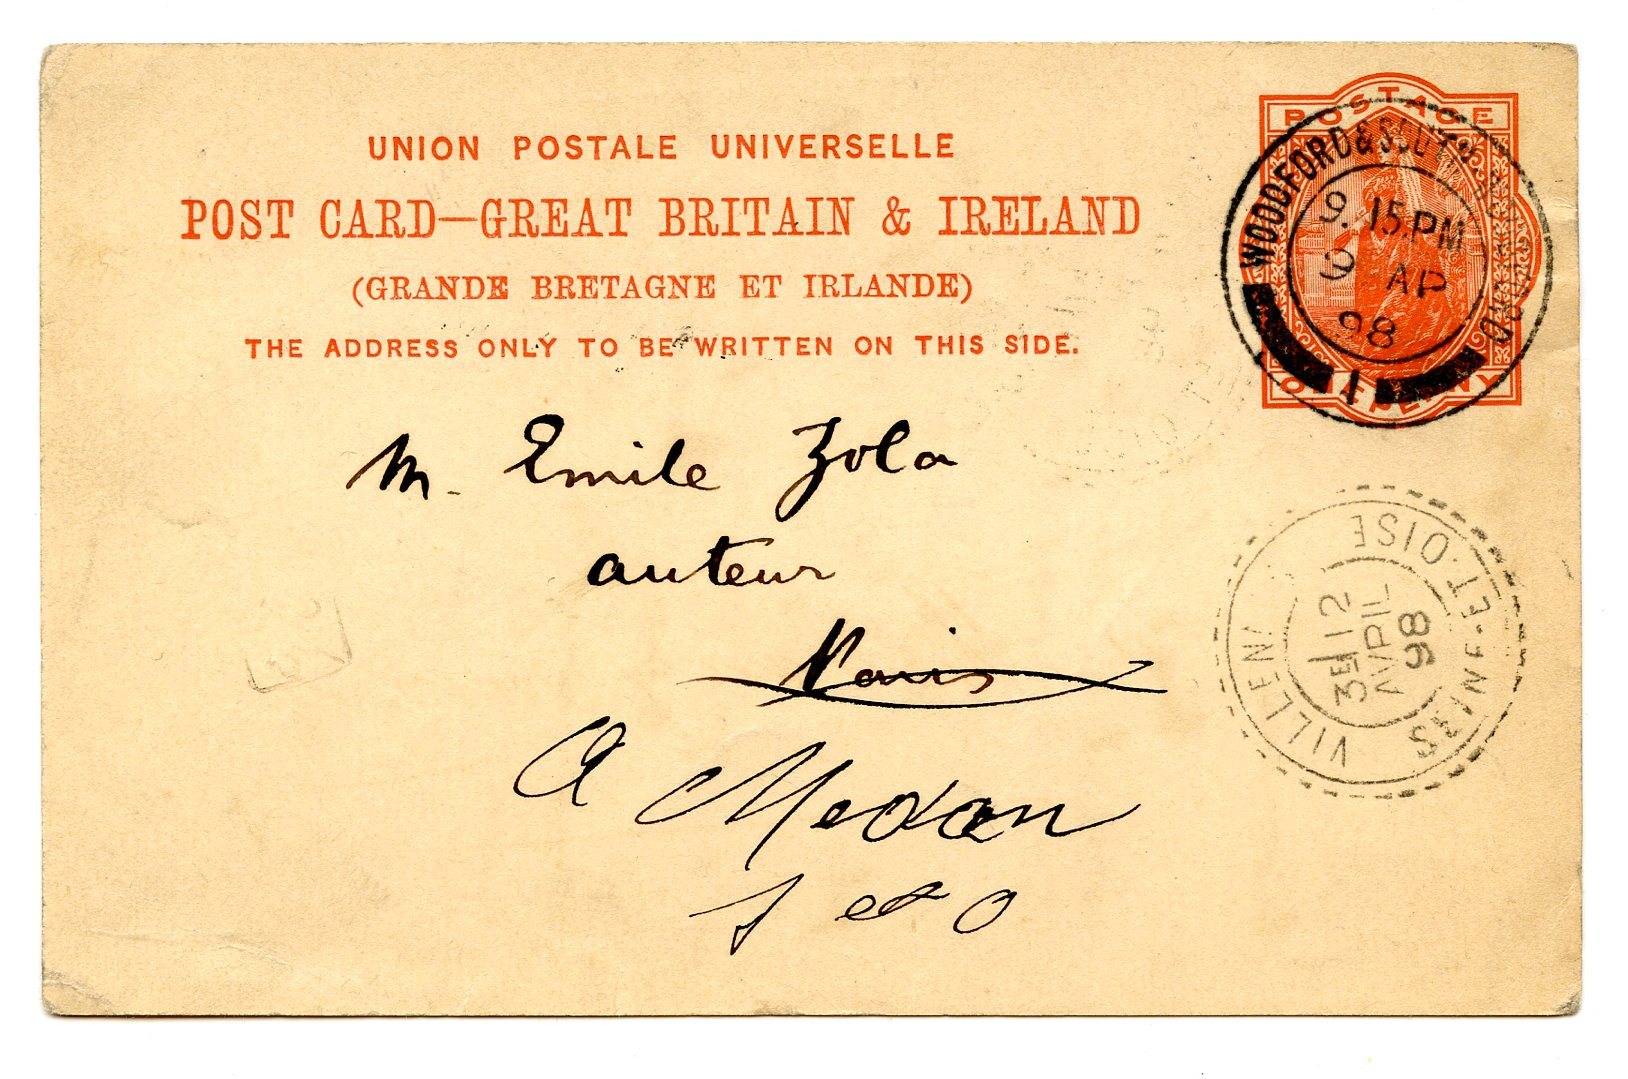 UNION POSTALE UNIVERSELLE
POST CARD—GREAT BRITAIN & IRELAND
(GRANDE BRETAGNE ET IRLANDE)
THE ADDRESS ONLY TO BE WRITTEN ON THIS SIDE.
POSTAGE
ONE PENNY
WOODFORD & SOUTH
9.15.PM
9 AP
98
1
M. Emile Zola
auteur
Paris
A Medan
S et O
VILLENN
SEINE-ET-OISE
3E 12
AVRIL
98